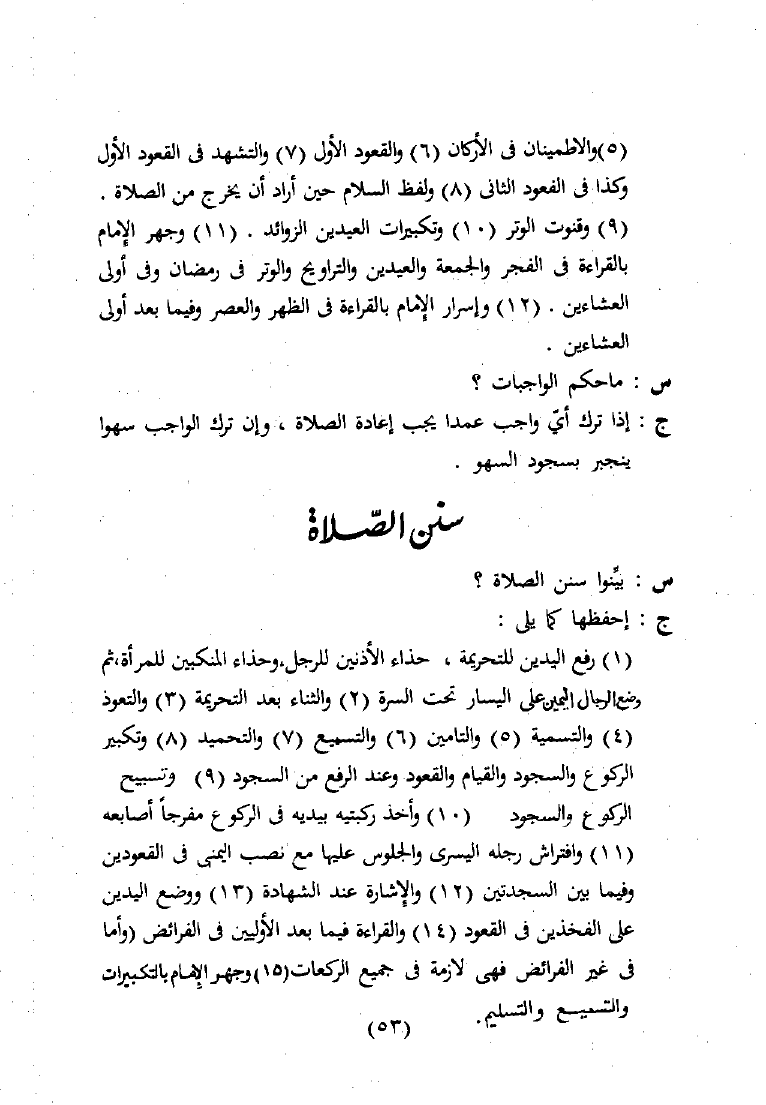 (٥)والاطمينان فى الأركان (٦) والقعود الأول (٧) والتشهد فى القعود الأول
وكذا فى القعود الثانى (٨) ولفظ السلام حين أراد أن يخرج من الصلاة .
(٩) وقنوت الوتر (١٠) وتكبيرات العيدين الزوائد . (١١) وجهر الإمام
بالقراءة فى الفجر والجمعة والعيدين والتراويح والوتر فى رمضان وفى أولى
العشاءين . (١٢) وإسرار الإمام بالقراءة فى الظهر والعصر وفيما بعد أولى
العشاءين .
س : ماحكم الواجبات ؟
ج : إذا ترك أىّ واجب عمدا يجب إعادة الصلاة ، وإن ترك الواجب سهوا
ينجبر بسجود السهو .
سنن الصّلاة
س : بيِّنوا سنن الصلاة ؟
ج : إحفظها كما يلى :
(١) رفع اليدين للتحريمة ، حذاء الأذنين للرجل،وحذاء المنكبين للمرأة،ثم
وضع الرجال اليمين على اليسار تحت السرة (٢) والثناء بعد التحريمة (٣) والتعوذ
(٤) والتسمية (٥) والتامين (٦) والتسميع (٧) والتحميد (٨) وتكبير
الركوع والسجود والقيام والقعود وعند الرفع من السجود (٩) وتسبيح
الركوع والسجود (١٠) وأخذ ركبتيه بيديه فى الركوع مفرجاً أصابعه
(١١) وافتراش رجله اليسرى والجلوس عليها مع نصب اليمنى فى القعودين
وفيما بين السجدتين (١٢) والإشارة عند الشهادة (١٣) ووضع اليدين
على الفخذين فى القعود (١٤) والقراءة فيما بعد الأوليين فى الفرائض (وأما
فى غير الفرائض فهى لازمة فى جميع الركعات(١٥)وجهر الإمام بالتكبيرات
والتسميع والتسليم.
(٥٣)